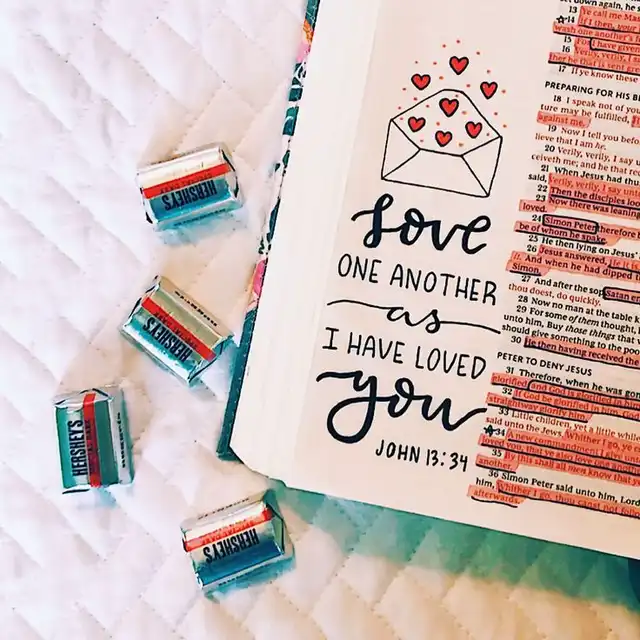 LOVE
ONE ANOTHER
as
I HAVE LOVED
you
JOHN 13:34
13 Ye call me Mas
14 If I then, your
wash one another's f
15 For I have given
16 Verily, verily, I
ther he that is sent gre
17 If ye know these
PREPARING FOR HIS BE
18 I speak not of you
ture may be fulfilled,
against me.
19 Now I tell you befor
lieve that I am he.
20 Verily, verily, I say
ceiveth me; and he that rec
21 When Jesus had thu
said, Verily, verily, I say unt
22 Then the disciples look
23 Now there was leaning
loved.
24 Simon Peter therefore b
be of whom he spake.
25 He then lying on Jesus'
26 Jesus answered, He it i
it. And when he had dipped
Simon.
27 And after the sop Satan e
thou doest, do quickly.
28 Now no man at the table k
29 For some of them thought,
unto him, Buy those things that w
should give something to the poo
30 He then having received the
PETER TO DENY JESUS
31 Therefore, when he was gon
glorified and God is glorified in him
32 If God be glorified in him, God
straightway glorify him.
33 Little children, yet a little whil
said unto the Jews, Whither I go, ye c
34 A new commandment I give unto
loved you, that ye also love one anoth
35 By this shall all men know that y
another.
36 Simon Peter said unto him, Lord
him, Whither I go, thou canst not follo
afterwards.
HERSHEY'S
SPECIAL DARK
HERSHEY'S
HERSHEY'S
HERSHEY'S